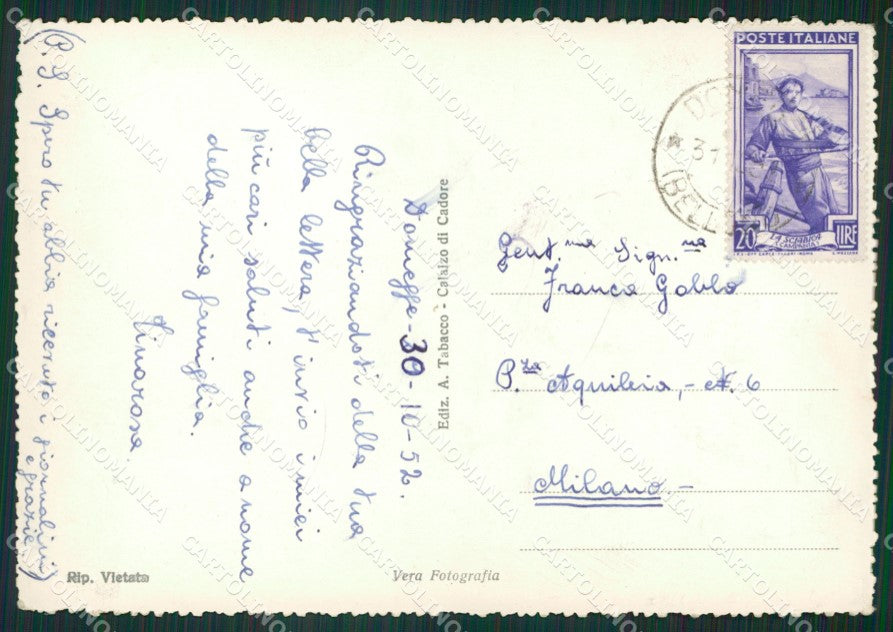 Domegge - 30-10-52.
Ringraziandoti della tua
bella lettera, t'invio i miei
più cari saluti anche a nome
della mia famiglia.
Vinarosa
(P.S. Spero tu abbia ricevuto i giornalini
e grazie)
Rip. Vietata
Vera Fotografia
Ediz. A. Tabacco - Calalzo di Cadore
POSTE ITALIANE
20 LIRE
Gent.ma Sign.na
Franca Gobbo
P.za Aquileia, - N. 6
Milano -
CARTOLINOMANIA